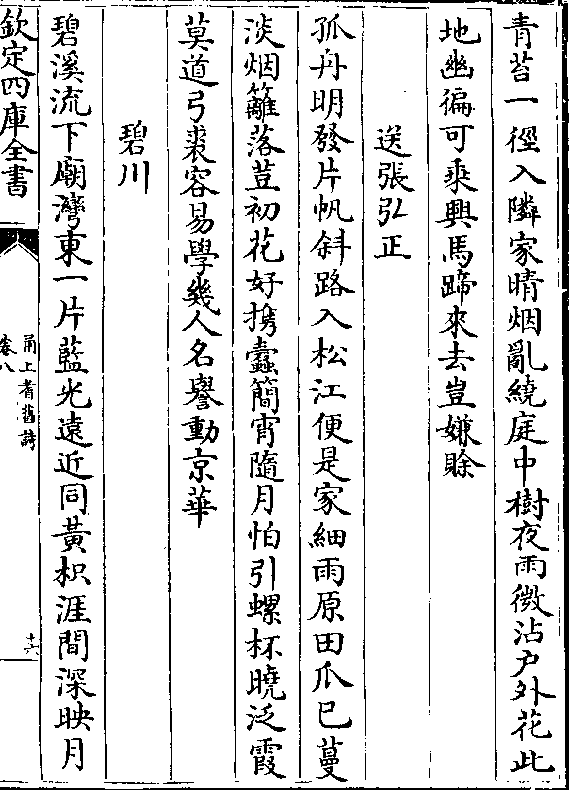 青苔一徑入隣家晴烟亂繞庭中樹夜雨微沾户外花此
地幽徧可乗興馬蹄來去豈嫌賒
送張弘正
孤舟明發片帆斜路入松江便是家細雨原田瓜已蔓
淡烟籬落荳初花好携蠧簡宵隨月怕引螺杯曉泛霞
莫道弓裘容易學幾人名譽動京華
碧川
碧溪流下廟灣東一片藍光遠近同黃枳涯間深映月
欽定四庫全書
甬上耆舊詩
卷八
十六